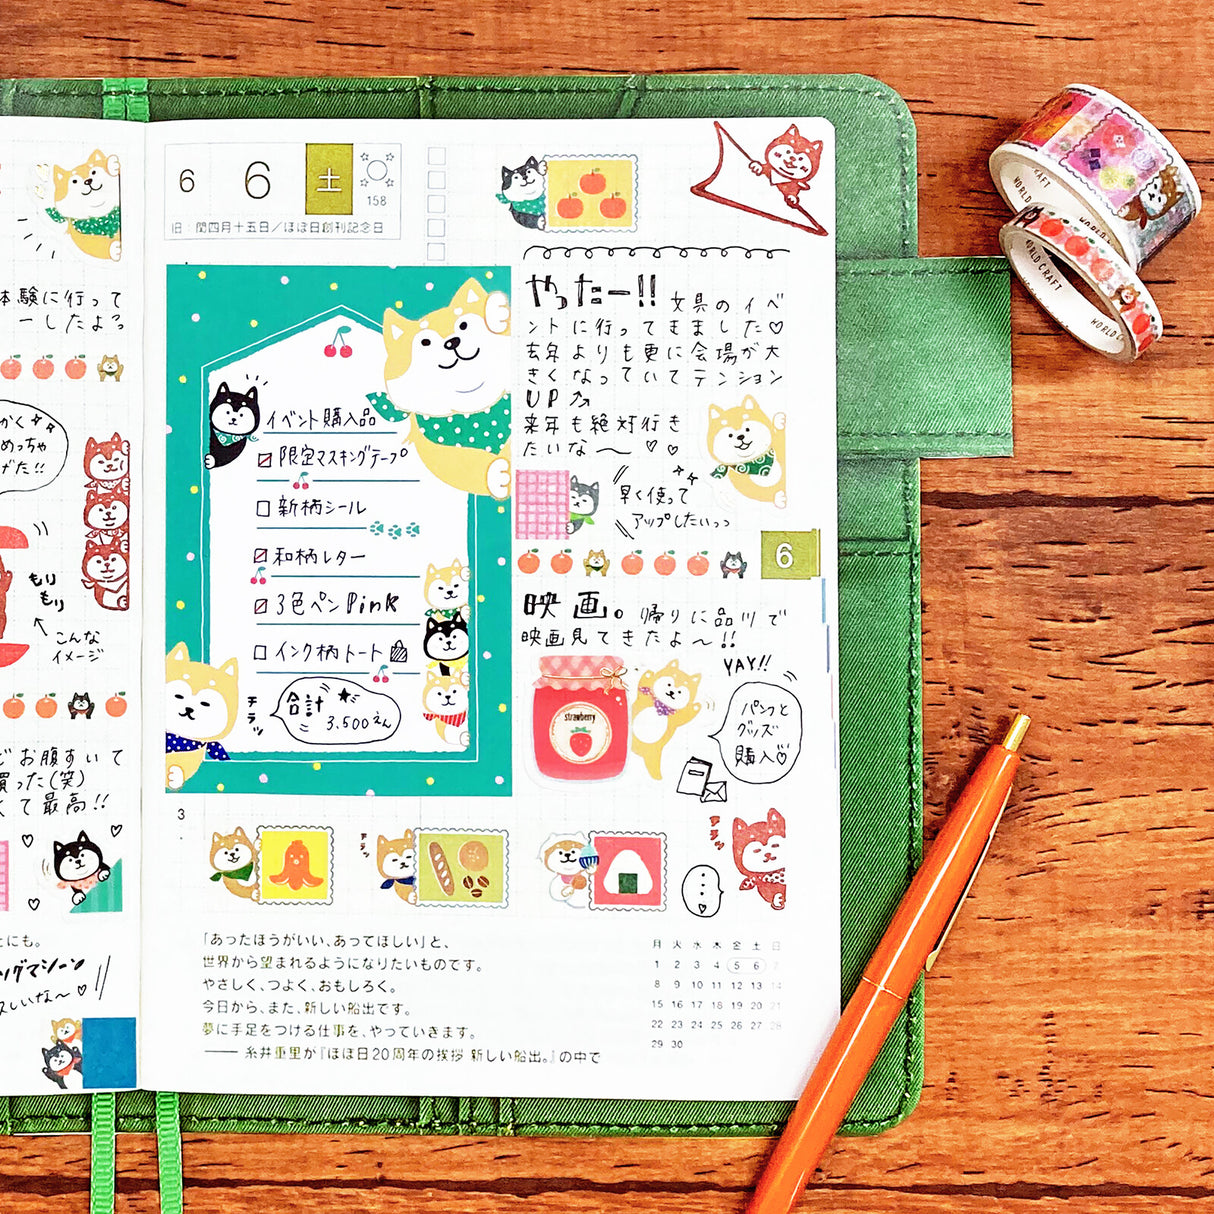 体験に行って
ーしたよっ
かくれ
めっちゃ
げた!!
もり
もり
こんな
イメージ
お腹すいて
買った(笑)
くて最高!!
とにも。
6 6 土
158
旧:閏四月十五日/ほぼ日創刊記念日
イベント購入品
限定マスキングテープ
新柄シール
和柄レター
3色ペン Pink
インク柄トート
チラッ
合計
3,500えん
やったー!! 文具のイベ
ントに行ってきました♡
去年よりも更に会場が大
きくなっていてテンション
UP
来年も絶対行き
たいな〜 ♡ ♡
早く使って
アップしたいっっ
6
映画。帰りに品川で
映画見てきたよ〜!!
strawberry
YAY!!
パンフと
グッズ
購入♡
3
チラッ
チラッ
チラッ
「あったほうがいい、あってほしい」と、
世界から望まれるようになりたいものです。
やさしく、つよく、おもしろく。
今日から、また、新しい船出です。
夢に手足をつける仕事を、やっていきます。
―― 糸井重里が『ほぼ日20周年の挨拶 新しい船出。』の中で
月 火 水 木 金 土 日
1 2 3 4 5 6 7
8 9 10 11 12 13 14
15 16 17 18 19 20 21
22 23 24 25 26 27 28
29 30
WORLD CRAFT
WORLD
WORLD CRAFT
WORLD